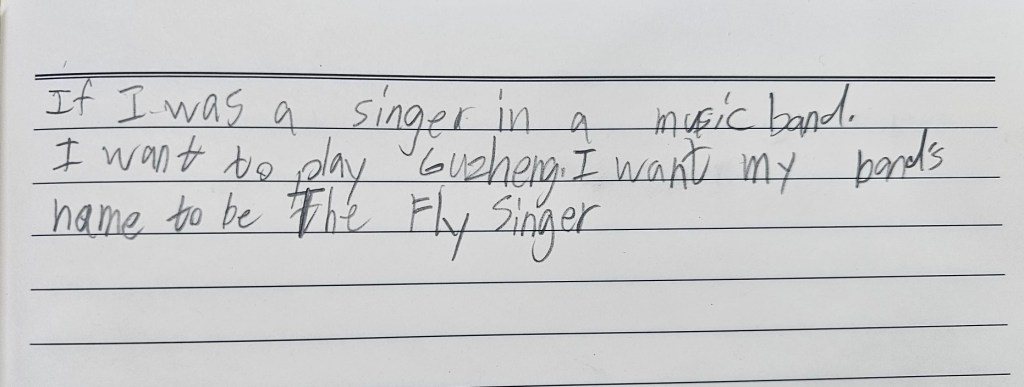 If I was a singer in a music band.
I want to play Guzheng. I want my band's
name to be The Fly Singer